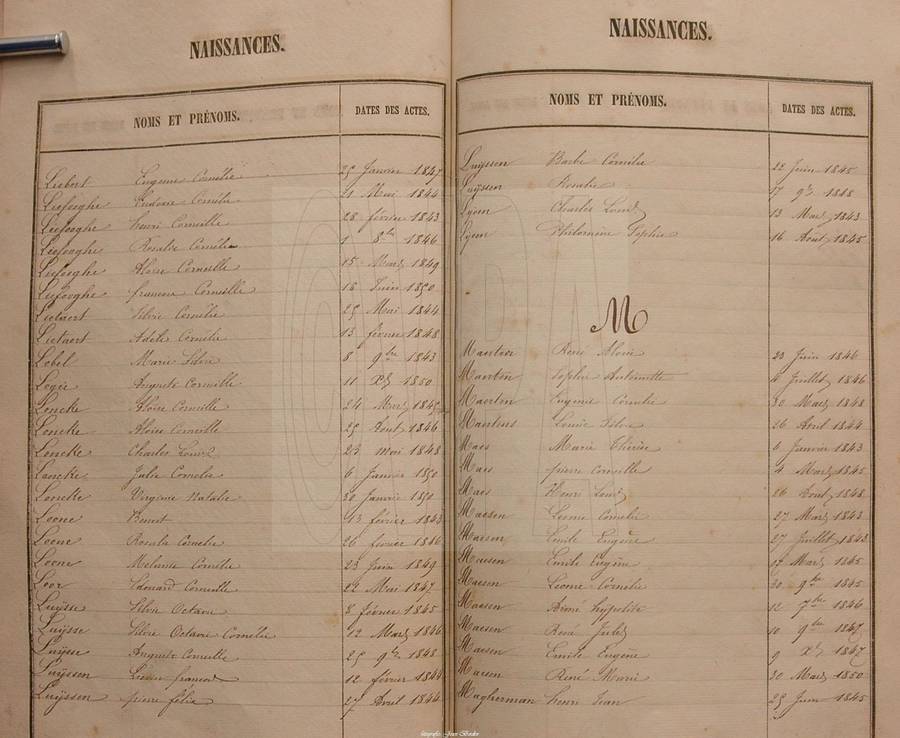 NAISSANCES.
NOMS ET PRÉNOMS. DATES DES ACTES.
Liebert Eugenie Cornélie 25 Janvier 1847
Liefooghe Ludovic Cornélie 21 Mai 1844
Liefooghe henri Corneille 28 février 1843
Liefooghe Rosalie Cornélie 1 8bre 1846
Liefooghe Aloise Corneille 15 Mars 1849
Liefooghe francois Corneille 18 Juin 1850
Lietaert Silvie Cornélie 25 Mai 1844
Lietaert Adele Cornélie 13 février 1848
Lobel Marie 8 9bre 1843
Logie Auguste Corneille 11 Xbre 1850
Loncke Aloise Corneille 24 Mars 1845
Loncke Aloise Corneille 25 Aout 1846
Loncke Charles Louis 23 mai 1848
Loncke Julie Cornelie 6 Janvier 1850
Loncke Virginie Natalie 30 Janvier 1850
Loone Benoit 13 février 1843
Loone Rosalie Cornelie 26 février 1846
Loone Melanie Cornélie 23 Juin 1849
Loor Edouard Corneille 22 Mai 1847
Luijsse Silvie Octavie 8 février 1845
Luijsse Silvie Octavie Cornélie 12 Mars 1846
Luijsse Auguste Corneille 25 9bre 1848
Luijssen francois 12 février 1844
Luijssen pierre félix 27 Avril 1844
NAISSANCES.
NOMS ET PRÉNOMS. DATES DES ACTES.
Luijssen Barbe Cornélie 22 Juin 1845
Luijssen Rosalie 17 9bre 1848
Lyoen Charles Louis 13 Mars 1843
Lyoen Philomine Sophie 16 Aout 1845
M
René Aloise 23 Juin 1846
Maerten Sophie Antoinette 4 Juillet 1846
Maerten Eugenie Cornelie 30 Mars 1848
Maertens Louise 26 Avril 1844
Maes Marie Thérèse 6 Janvier 1843
Maes pierre Corneille 4 Mars 1845
Maes Henri Louis 26 Aout 1848
Maesen Leonie Cornelie 27 Mars 1843
Maesen Emile Eugène 27 Juillet 1843
Maesen Emile Eugène 17 Mars 1845
Maesen Leonie Cornelie 20 9bre 1845
Maesen Aimé hyppolite 12 7bre 1846
Maesen René Jules 10 9bre 1847
Maesen Emile Eugène 9 Xbre 1847
Maesen René Marie 30 Mars 1850
Magherman henri Jean 25 Juin 1845